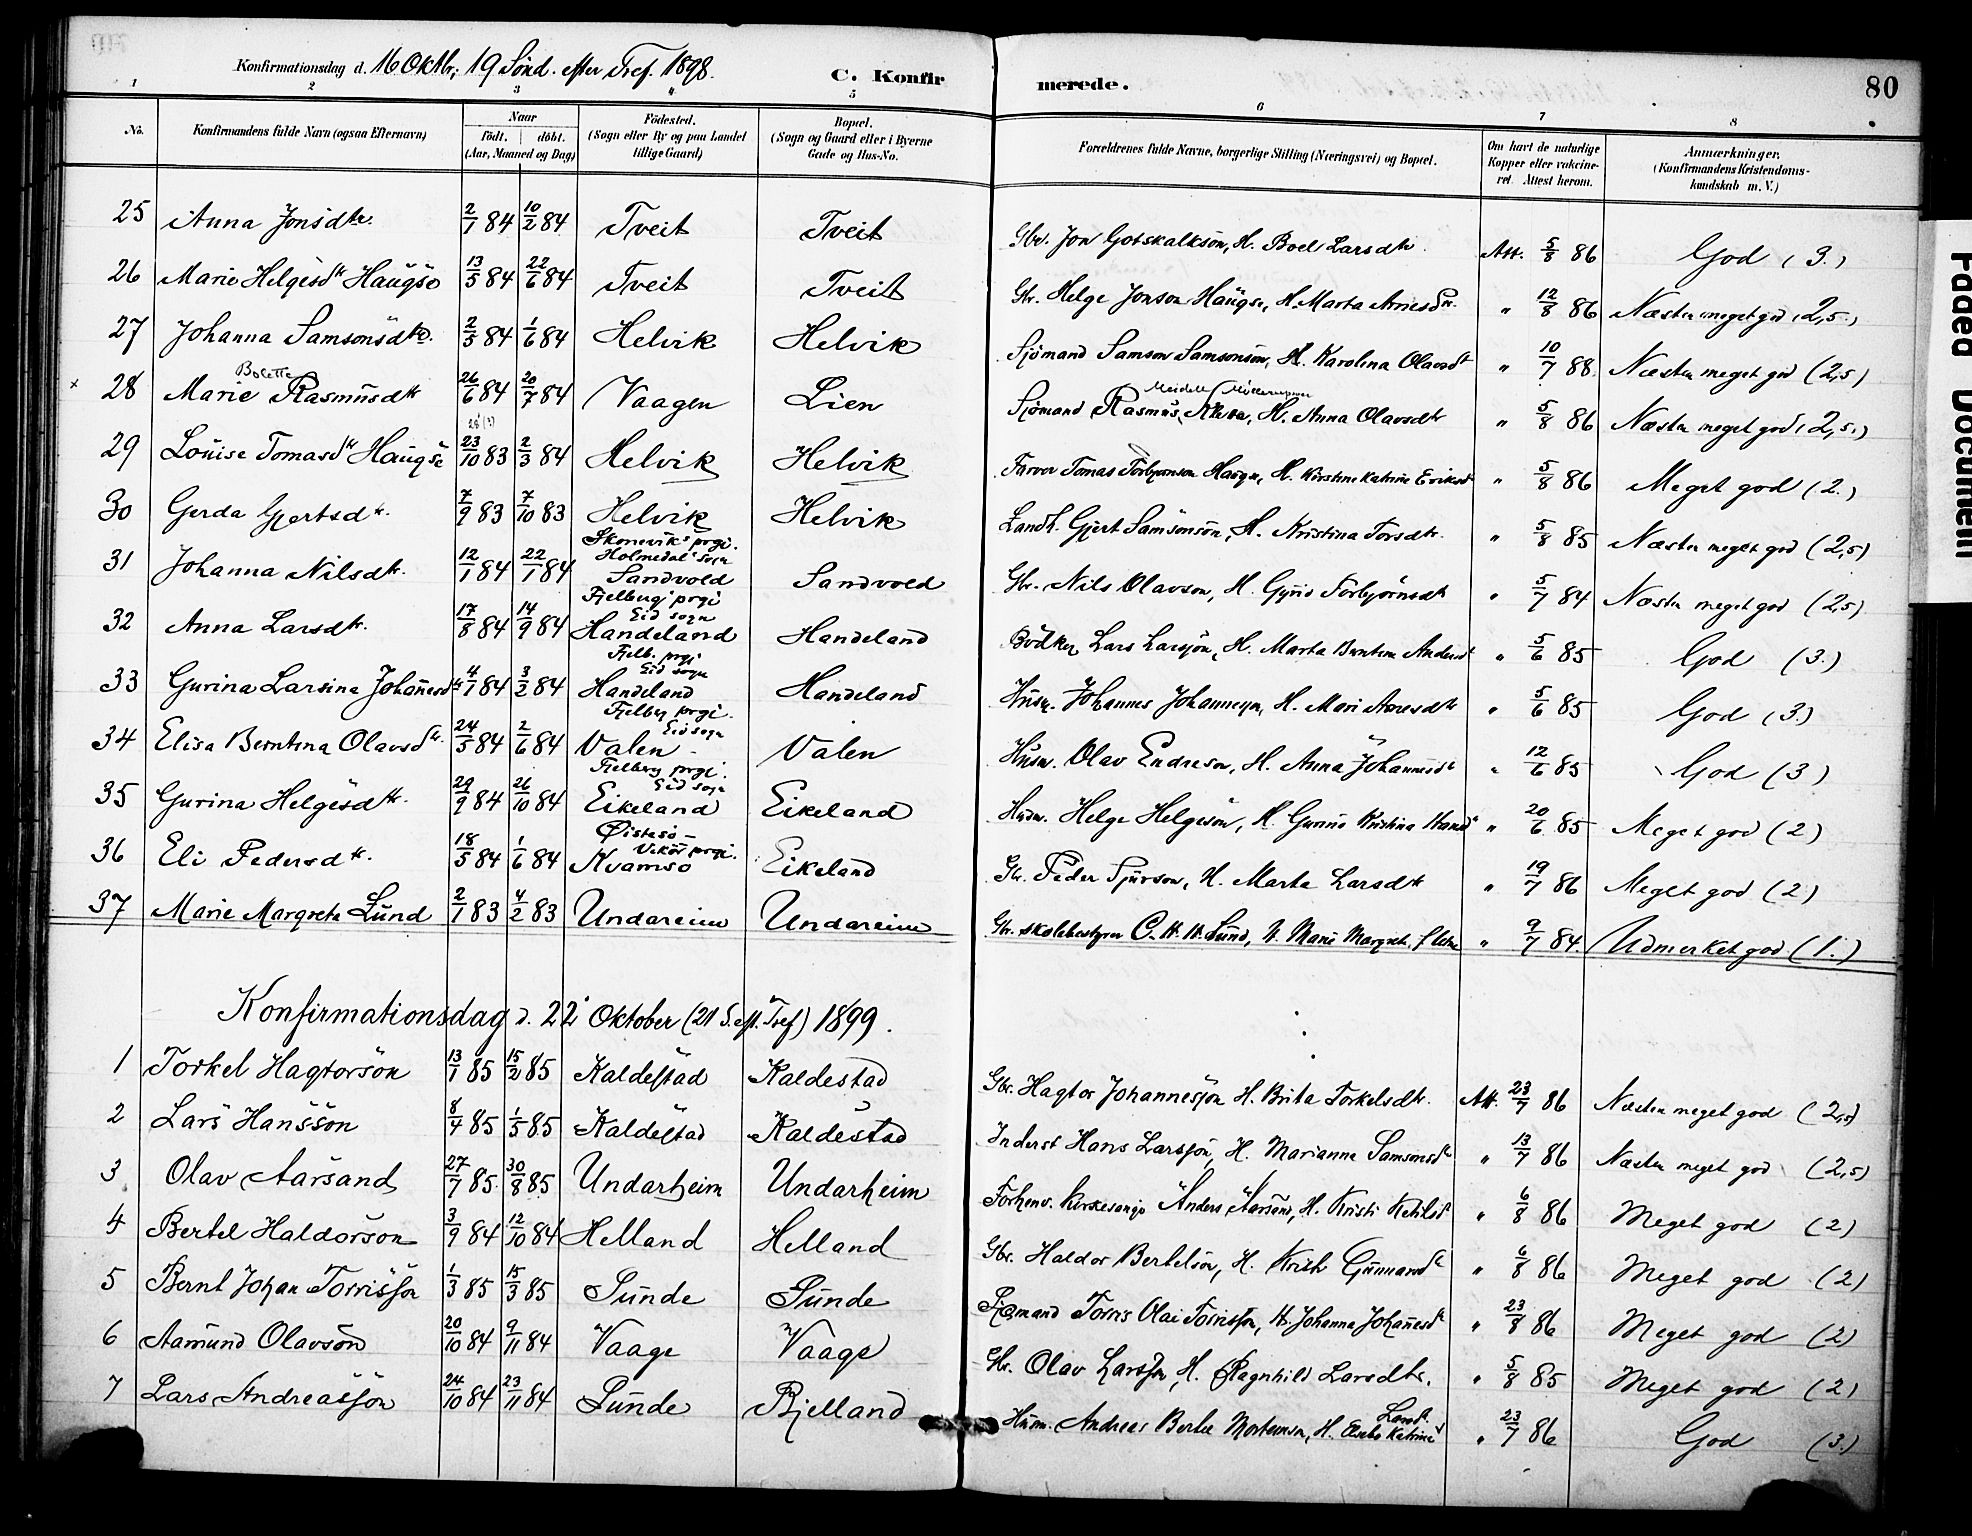 Konfirmationsdag d. 16 Oktbr; 19 Sönd. efter Tref. 1898.
C. Konfirmerede.
80
1 2 3 4 5 6 7 8
No. Konfirmandens fulde Navn (ogsaa Efternavn) Naar födt. döbt. (Aar, Maaned og Dag) Födested. (Sogn eller By og paa Landet tillige Gaard) Bopæl. (Sogn og Gaard eller i Byerne Gade og Hus-No. Forældrenes fulde Navne, borgerlige Stilling (Næringsvei) og Bopæl. Om havt de naturlige Kopper eller vakcineret. Attest herom. Anmærkninger. (Konfirmandens Kristendomskundskab m. V.)
25 Anna Jonsdtr. 2/1 84 10/2 84 Tveit Tveit Gbr. Jon Gotskalkson, H. Boel Larsdtr. Att. 5/8 86 God (3.)
26 Marie Helgesdtr Haugse 13/5 84 22/6 84 Tveit Tveit Gbr. Helge Jonson Haugse, H. Marta Arnesdtr. " 12/8 86 Næsten meget god (2,5.)
27 Johanna Samsonsdtr. 2/5 84 1/6 84 Helvik Helvik Sjömand Samson Samsonson, H. Karolina Olavsdtr " 10/7 88 Næsten meget god (2,5)
x 28 Marie Bolette Rasmusdtr 26/6 84 20/7 84 Vaagen Lien Sjömand Rasmus, H. Anna Olavsdtr " 5/8 86 Næsten meget god (2,5.)
29 Louise Tomasdtr Haugse 23/10 83 2/3 84 Helvik Helvik Tomas Torbjørnson Haugse, H. Kirstine Katrine Eriksdtr " 5/8 86 Meget god (2.)
30 Gerda Gjertsdtr. 7/9 83 7/10 83 Helvik Helvik Landh. Gjert Samsonson, H. Kristina Torsdtr. " 5/8 85 Næsten meget god (2,5)
31 Johanna Nilsdtr. 12/1 84 22/1 84 Skonevik's prgj. Holmedal's sogn Sandvold Sandvold Gbr. Nils Olavson, H. Gyrid Torbjørnsdtr " 5/7 84 Næsten meget god (2,5)
32 Anna Larsdtr. 17/8 84 14/9 84 Fjelberg prgj Eid sogn Handeland Handeland Bødker Lars Larsson, H. Marta Berntine Andersdtr " 5/6 85 God (3.)
33 Gurina Larsine Johannesdtr 4/1 84 3/2 84 Fjelb. prgj Eid sogn Handeland Handeland Husm. Johannes Johannesson, H. Mari Arnesdtr " 5/6 85 God (3.)
34 Elisa Berntina Olavsdtr. 24/5 84 2/6 84 Fjelberg prgj. Eid sogn Valen Valen Husm. Olav Endreson, H. Anna Johannesdtr " 12/6 85 God (3)
35 Gurina Helgesdtr. 29/9 84 26/10 84 Fjelberg prgj. Eid sogn Eikeland Eikeland Husm. Helge Helgeson, H. Gurine Kristina Hansdtr " 20/6 85 Meget god (2)
36 Eli Pedersdtr. 18/5 84 1/6 84 Øistesö – Vikör prgj. Kvamsö Eikeland Gbr. Peder Sjurson, H. Marta Larsdtr " 19/7 86 Meget god (2)
37 Marie Margrete Lund 2/1 83 4/2 83 Undareim Undareim Gbr. skolebestyrer C. H. H. Lund, H. Marie Margret. " 9/7 84. Udmerket god (1.)
Konfirmationsdag d. 22 Oktober (21 S. eft. Tref) 1899.
1 Torkel Hagtorson 13/1 85 15/2 85 Kaldestad Kaldestad Gbr. Hagtor Johannesson H. Brita Torkelsdtr. Att. 23/7 86 Næsten meget god (2,5)
2 Lars Hansson 8/4 85 1/5 85 Kaldestad Kaldestad Inderst Hans Larsson, H. Marianne Samsonsdtr " 13/7 86 Næsten meget god (2,5)
3 Olav Aarsand 27/7 85 30/8 85 Undarheim Undarheim Forhenv. kirkesanger Anders Aarsand, H. Kristi Ketilsdtr " 6/8 86 Meget god (2)
4 Bertel Haldorson 3/9 84 12/10 84 Helland Helland Gbr. Haldor Bertelson, H. Kristi Gunnarsdtr " 6/8 86 Meget god (2)
5 Bernt Johan Torrisson 1/3 85 15/3 85 Sunde Sunde Sjømand Torris Olai Torrisson, H. Johanna Johannesdtr " 23/8 86 Meget god (2)
6 Aamund Olavson 20/10 84 9/11 84 Vaage Vaage Gbr. Olav Larsson, H. Ragnhild Larsdtr. " 5/8 85 Meget god (2)
7 Lars Andreasson 24/10 84 23/11 84 Sunde Bjelland Husm. Andreas Bertel Mortensen, H. Katrine Larsd. " 23/7 86 God (3.)
Faded Document